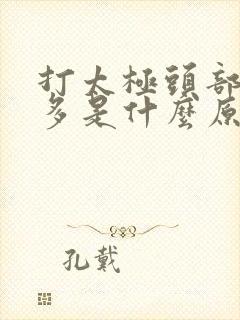 打太極頭部
多是什麼原
孔戴